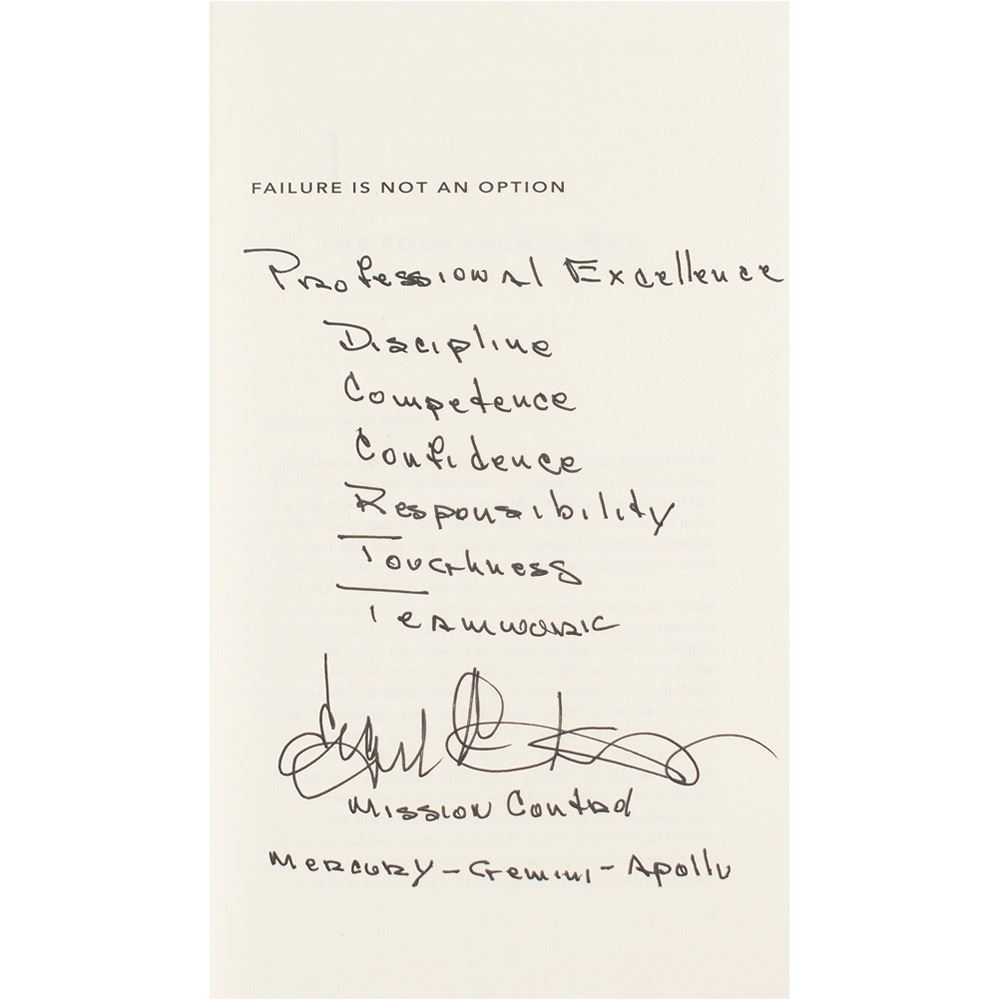 FAILURE IS NOT AN OPTION
Professional Excellence
Discipline
Competence
Confidence
Responsibility
Toughness
Teamwork
Mission Control
Mercury - Gemini - Apollo